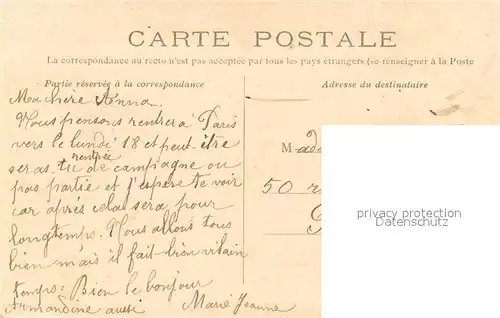 CARTE POSTALE
La correspondance au recto n'est pas acceptée par tous les pays étrangers (se renseigner à la Poste
Partie réservée à la correspondance
Adresse du destinataire
Ma chère Anna.
Nous pensons rentrer à Paris
vers le lundi 18 et peut-être
rentrée
seras tu de campagne ou
pas partie et j'espère te voir
car après cela sera pour
longtemps. Nous allons tous
bien mais il fait bien vilain
temps: Bien le bonjour
Armandine aussi Marie Jeanne
Mad
50 r
privacy protection
Datenschutz